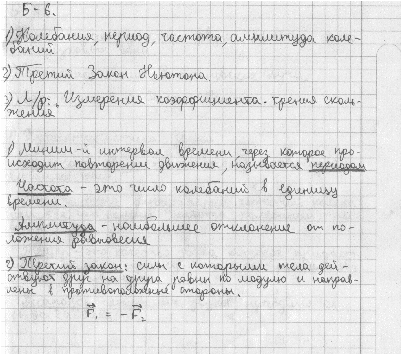 Б-6.
1) Колебания, период, частота, амплитуда коле-
баний
2) Третий Закон Ньютона
3) Л/р: Измерения коэффициента трения сколь-
жения
1) Миним-й интервал времени через которое про-
исходит повторение движения, называется периодом
Частота - это число колебаний в единицу
времени.
Амплитуда - наибольшее отклонение от по-
ложения равновесия
2) Третий закон: силы с которыми тела дей-
ствуют друг на друга равны по модулю и направ-
лены в противоположные стороны.
F₁ = -F₂